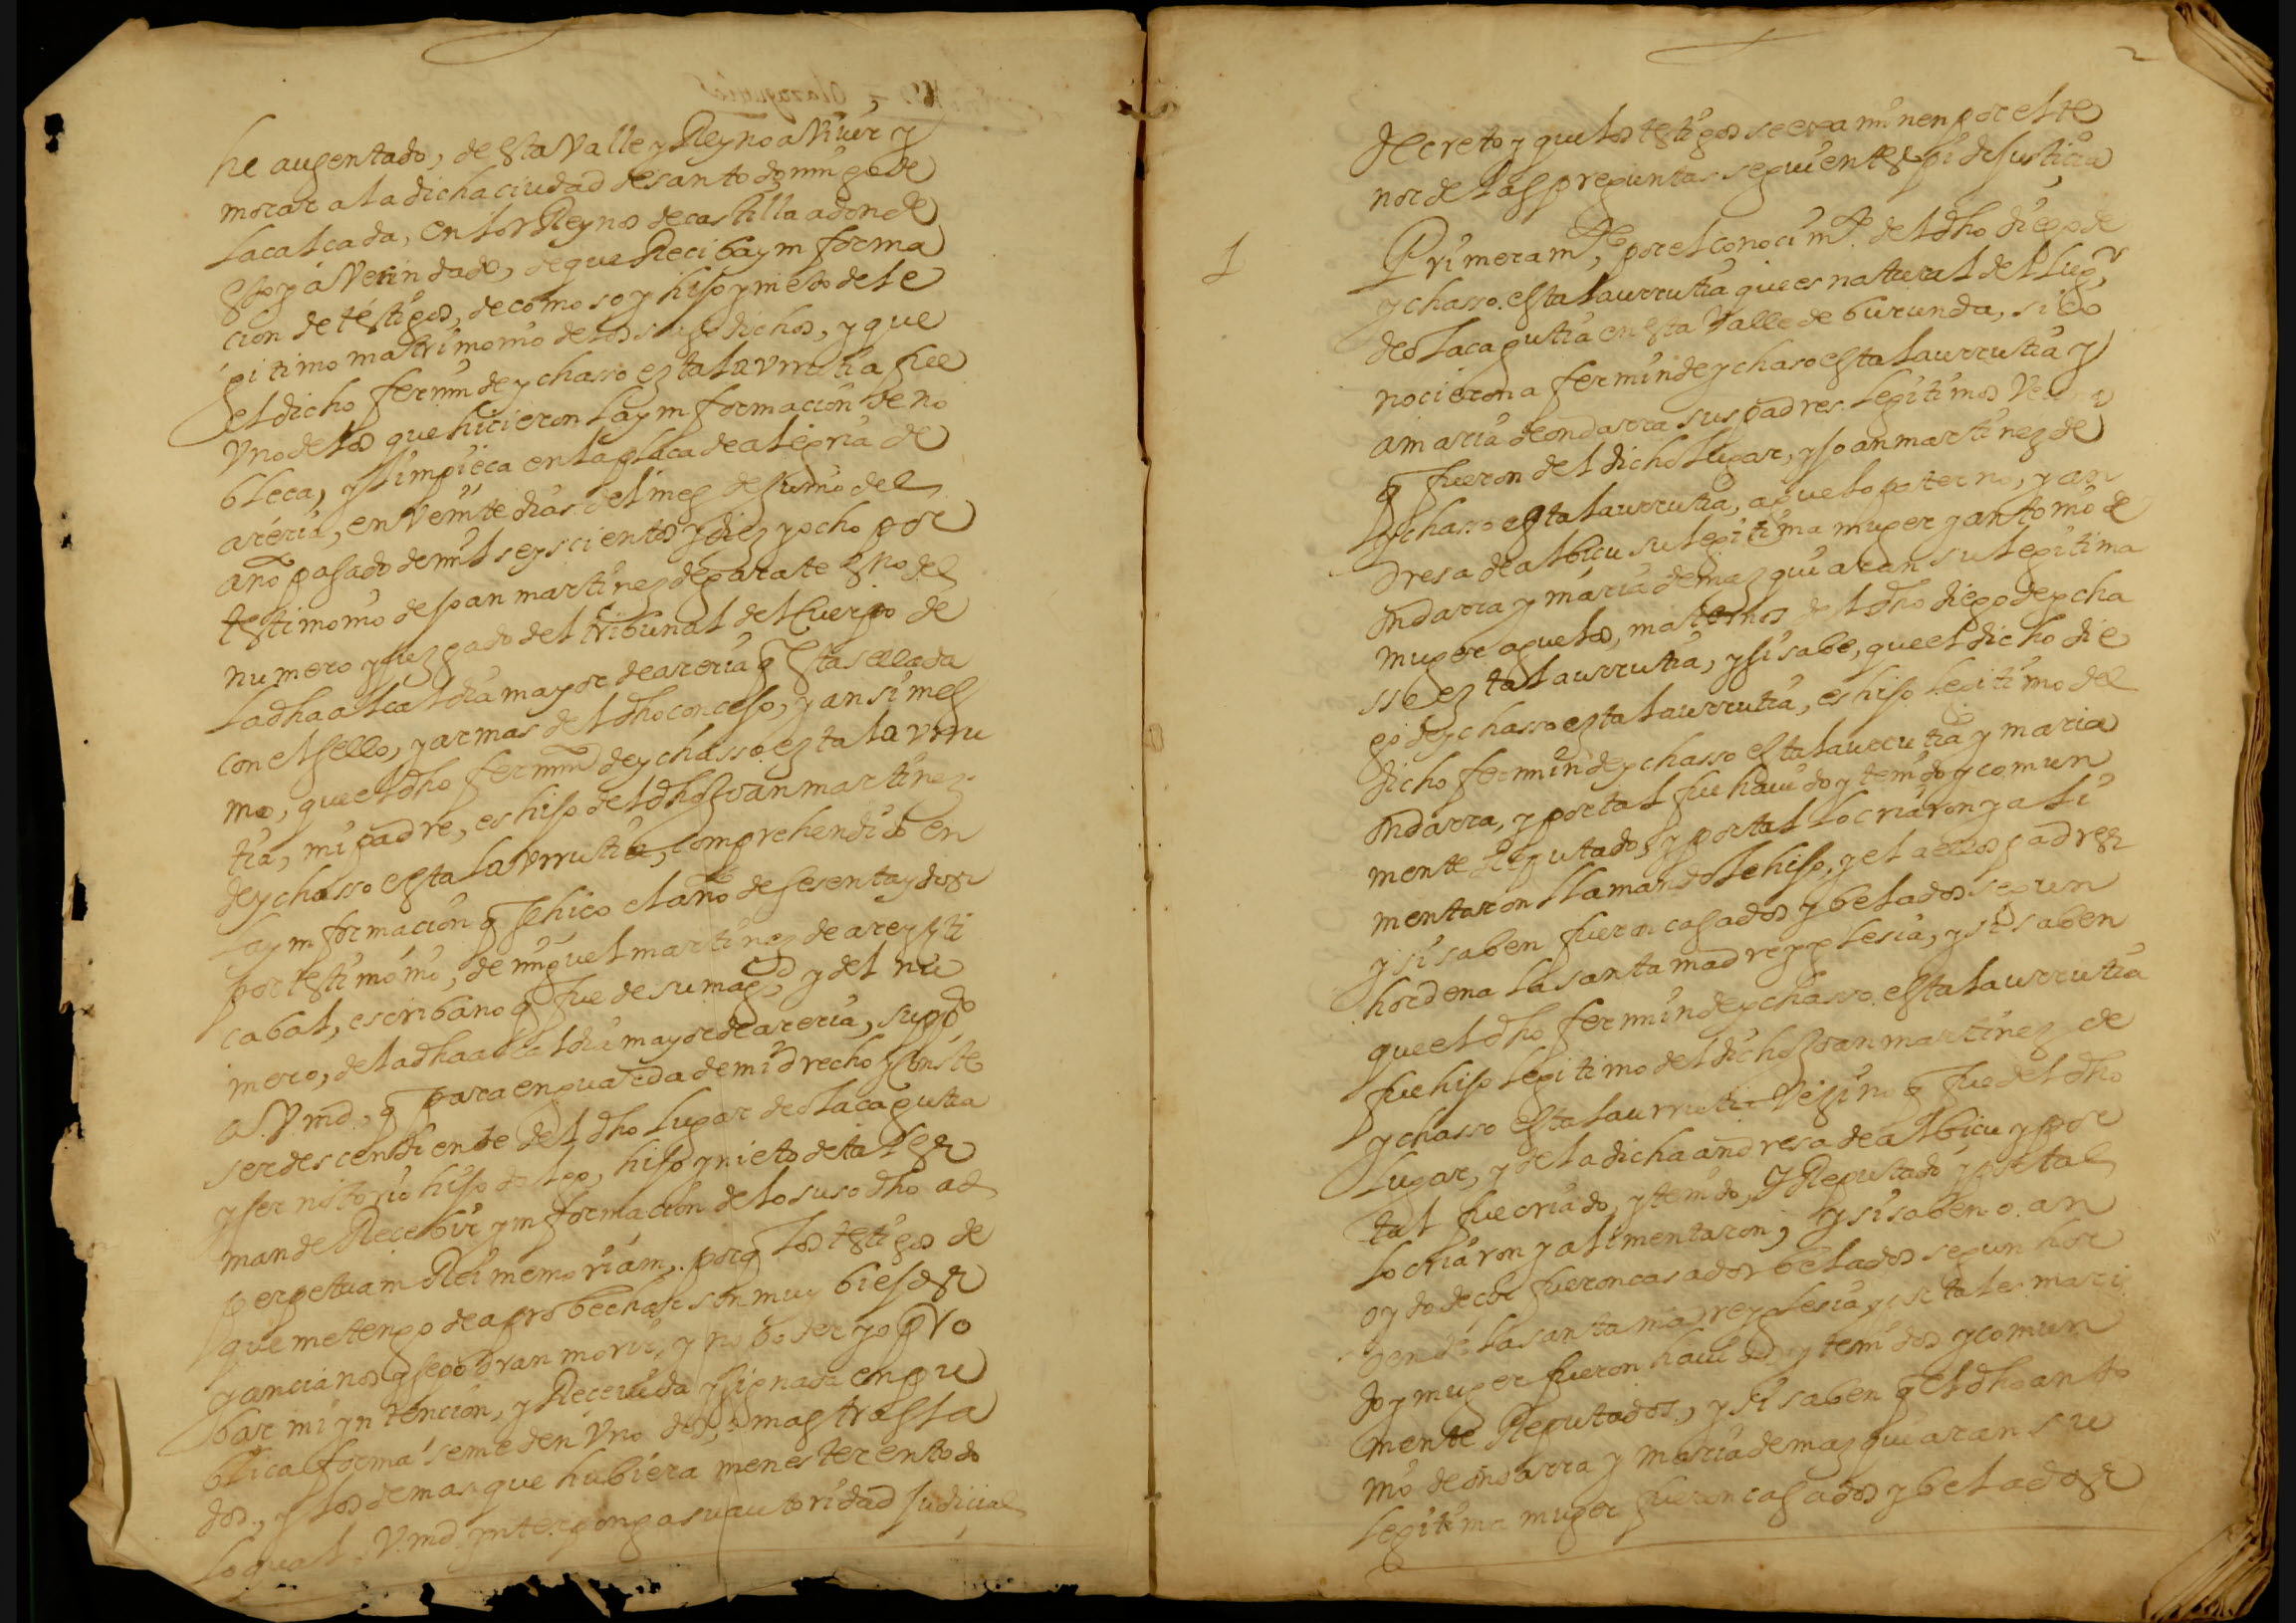 he ausentado, de esta Valle y Reyno a Vivir y
morar a la dicha ciudad de santo domingo de
la calcada, en los Reynos de castilla adonde
estoy aVecindado, de que Reciba ynforma
cion de testigos, de como soy hijo y nieto de le
gitimo matrimonio de los suso dichos, y que
el dicho fermin de ychasso eztala Vrrutia fue
Vno de los que hicieron la ynformacion de no
bleca, y limpieca en la placa de alegria de
areria, en Veinte dias del mes de Junio del
año pasado de mil seyscientos y diez y ocho por
testimonio de Joan martinez de çarate esno del
numero y juzgado del tribunal del cuerpo de
la dha alcaldia mayor de areria q esta sellada
con el sello, y armas del dho concejo, y ansi mes
mo, que el dho fermin de ychasso eztala Vrru
tia, mi padre, es hijo del dho Joan martinez
de ychasso estala Vrrutia, comprehendido en
la ynformacion q se hico el año de sesenta y dos
por testimonio, de miguel martinez de areyzti
cabal, escribano q fue de su magd, y del nu
mero, de la dha alcaldia mayor de areria, suppdo
a V.md., q para en guarda de mi drecho y conste
ser descendiente del dho lugar de olacagutia
y ser notorio hijo dalgo, hijo y nieto de tales
mande Recebir ynformacion de lo suso dho ad
perpetuam Rei memoriam, porq los testigos de
que me tengo de aprobechar son muy biejos
y ancianos y se podran morir, y no poder yo pro
bar mi yntencion, y Recevida y signada en pu
blica forma se me den Vno dos, o mas traslа
dos, y los demas que hubiera menester en todo
lo qual V.md. ynterponga su autoridad Judicial
2
decreto y que los testigos se examinen por el te
nor de las preguntas siguientes pi de Justicia
1
Primeramte, por el conocimto. del dho diego de
ychasso estalaurrutia que es natural del lugr
de olacagutia en esta Valle de burunda, si co
nocieron a fermin de ychaso estalaurrutia y
a maria de ondarra sus padres legitimos Ve
q fueron del dicho lugar, y Joan martinez de
ychasso estalaurrutia, aguelo paterno, y an
dresa de albicu su legitima muger y antonio de
ondarra y maria de mazquiaran su legitima
muger aguelos, maternos del dho diego de ycha
sso eztalaurrutia, y si sabe, que el dicho die
go de ychasso eztalaurrutia, es hijo legitimo del
dicho fermin de ychasso estalaurrutia y maria
ondarra, y por tal fue havido y tenido y comun
mente Reputado, y por tal lo criaron y ali
mentaron llamandole hijo, y el a ellos padres
y si saben fueron casados y belados segun
hordena la santa madre yglesia, y si saben
que el dho fermin de ychasso estalaurrutia
fue hijo legitimo del dicho Joan martinez de
ychasso estalaurrutia Vezino q fue del dho
lugar, y de la dicha andresa de albicu y por
tal fue criado, y tenido, y Reputado y por tal
lo criaron y alimentaron, y si saben o an
oydo decir fueron casados belados segun hor
den de la santa madre yglesia y por tales mari
do y muger fueron havidos y tenidos y comun
mente Reputados, y si saben q el dho anto
nio de ondarra y maria de mazquiaran su
legitima muger fueron casados y belados